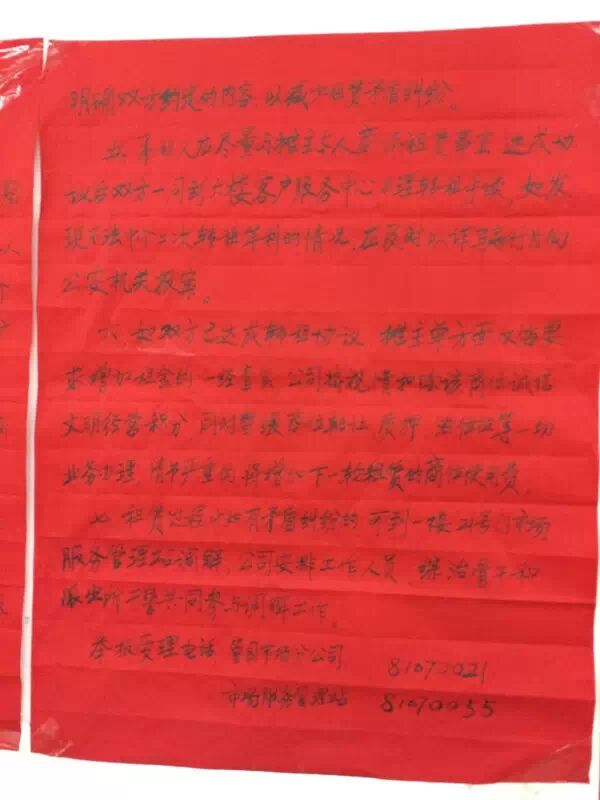 明确双方约定的内容 以减少租赁矛盾纠纷。
五、承租人应尽量与摊主本人商谈租赁事宜 达成协
议后双方一同到六楼客户服务中心办理转租手续,如发
现不法中介二次转租牟利的情况,应及时以诈骗行为向
公安机关报案。
六、如双方已达成转租协议 摊主单方面又临要
求增加租金的 一经查实 公司将视情扣除该商位诚信
文明经营积分,同时暂缓商位转让 质押 等一切
业务办理,情节严重的将增加下一轮租赁的商位使用费。
七、租赁过程中如有矛盾纠纷的 可到一楼24号门市场
服务管理站调解,公司安排工作人员、综治骨干和
派出所民警共同参与调解工作。
举报受理电话 篁园市场分公司 81070021
市场服务管理站 81070055